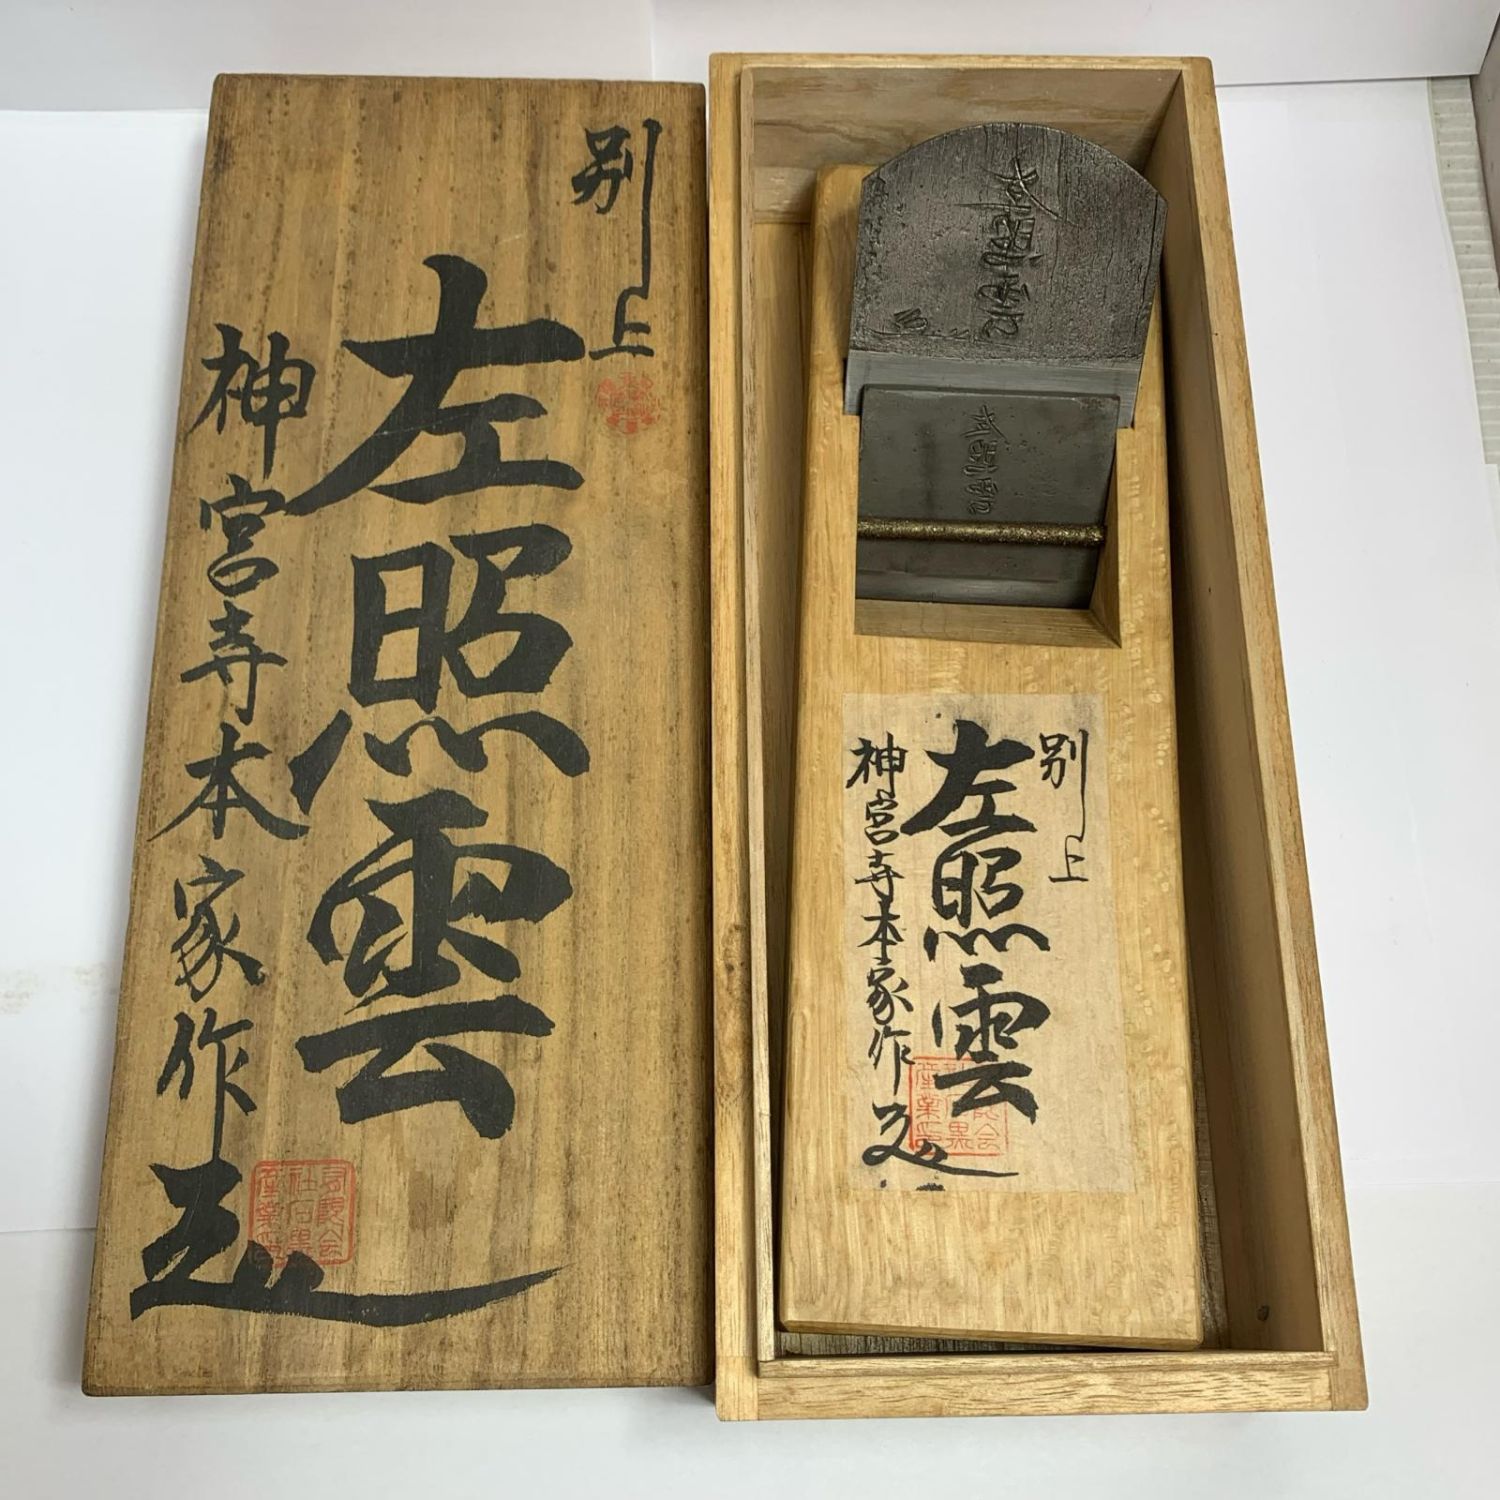 別上
左照雲
神宮寺本家作
別上
左照雲
神宮寺本家作
左照雲